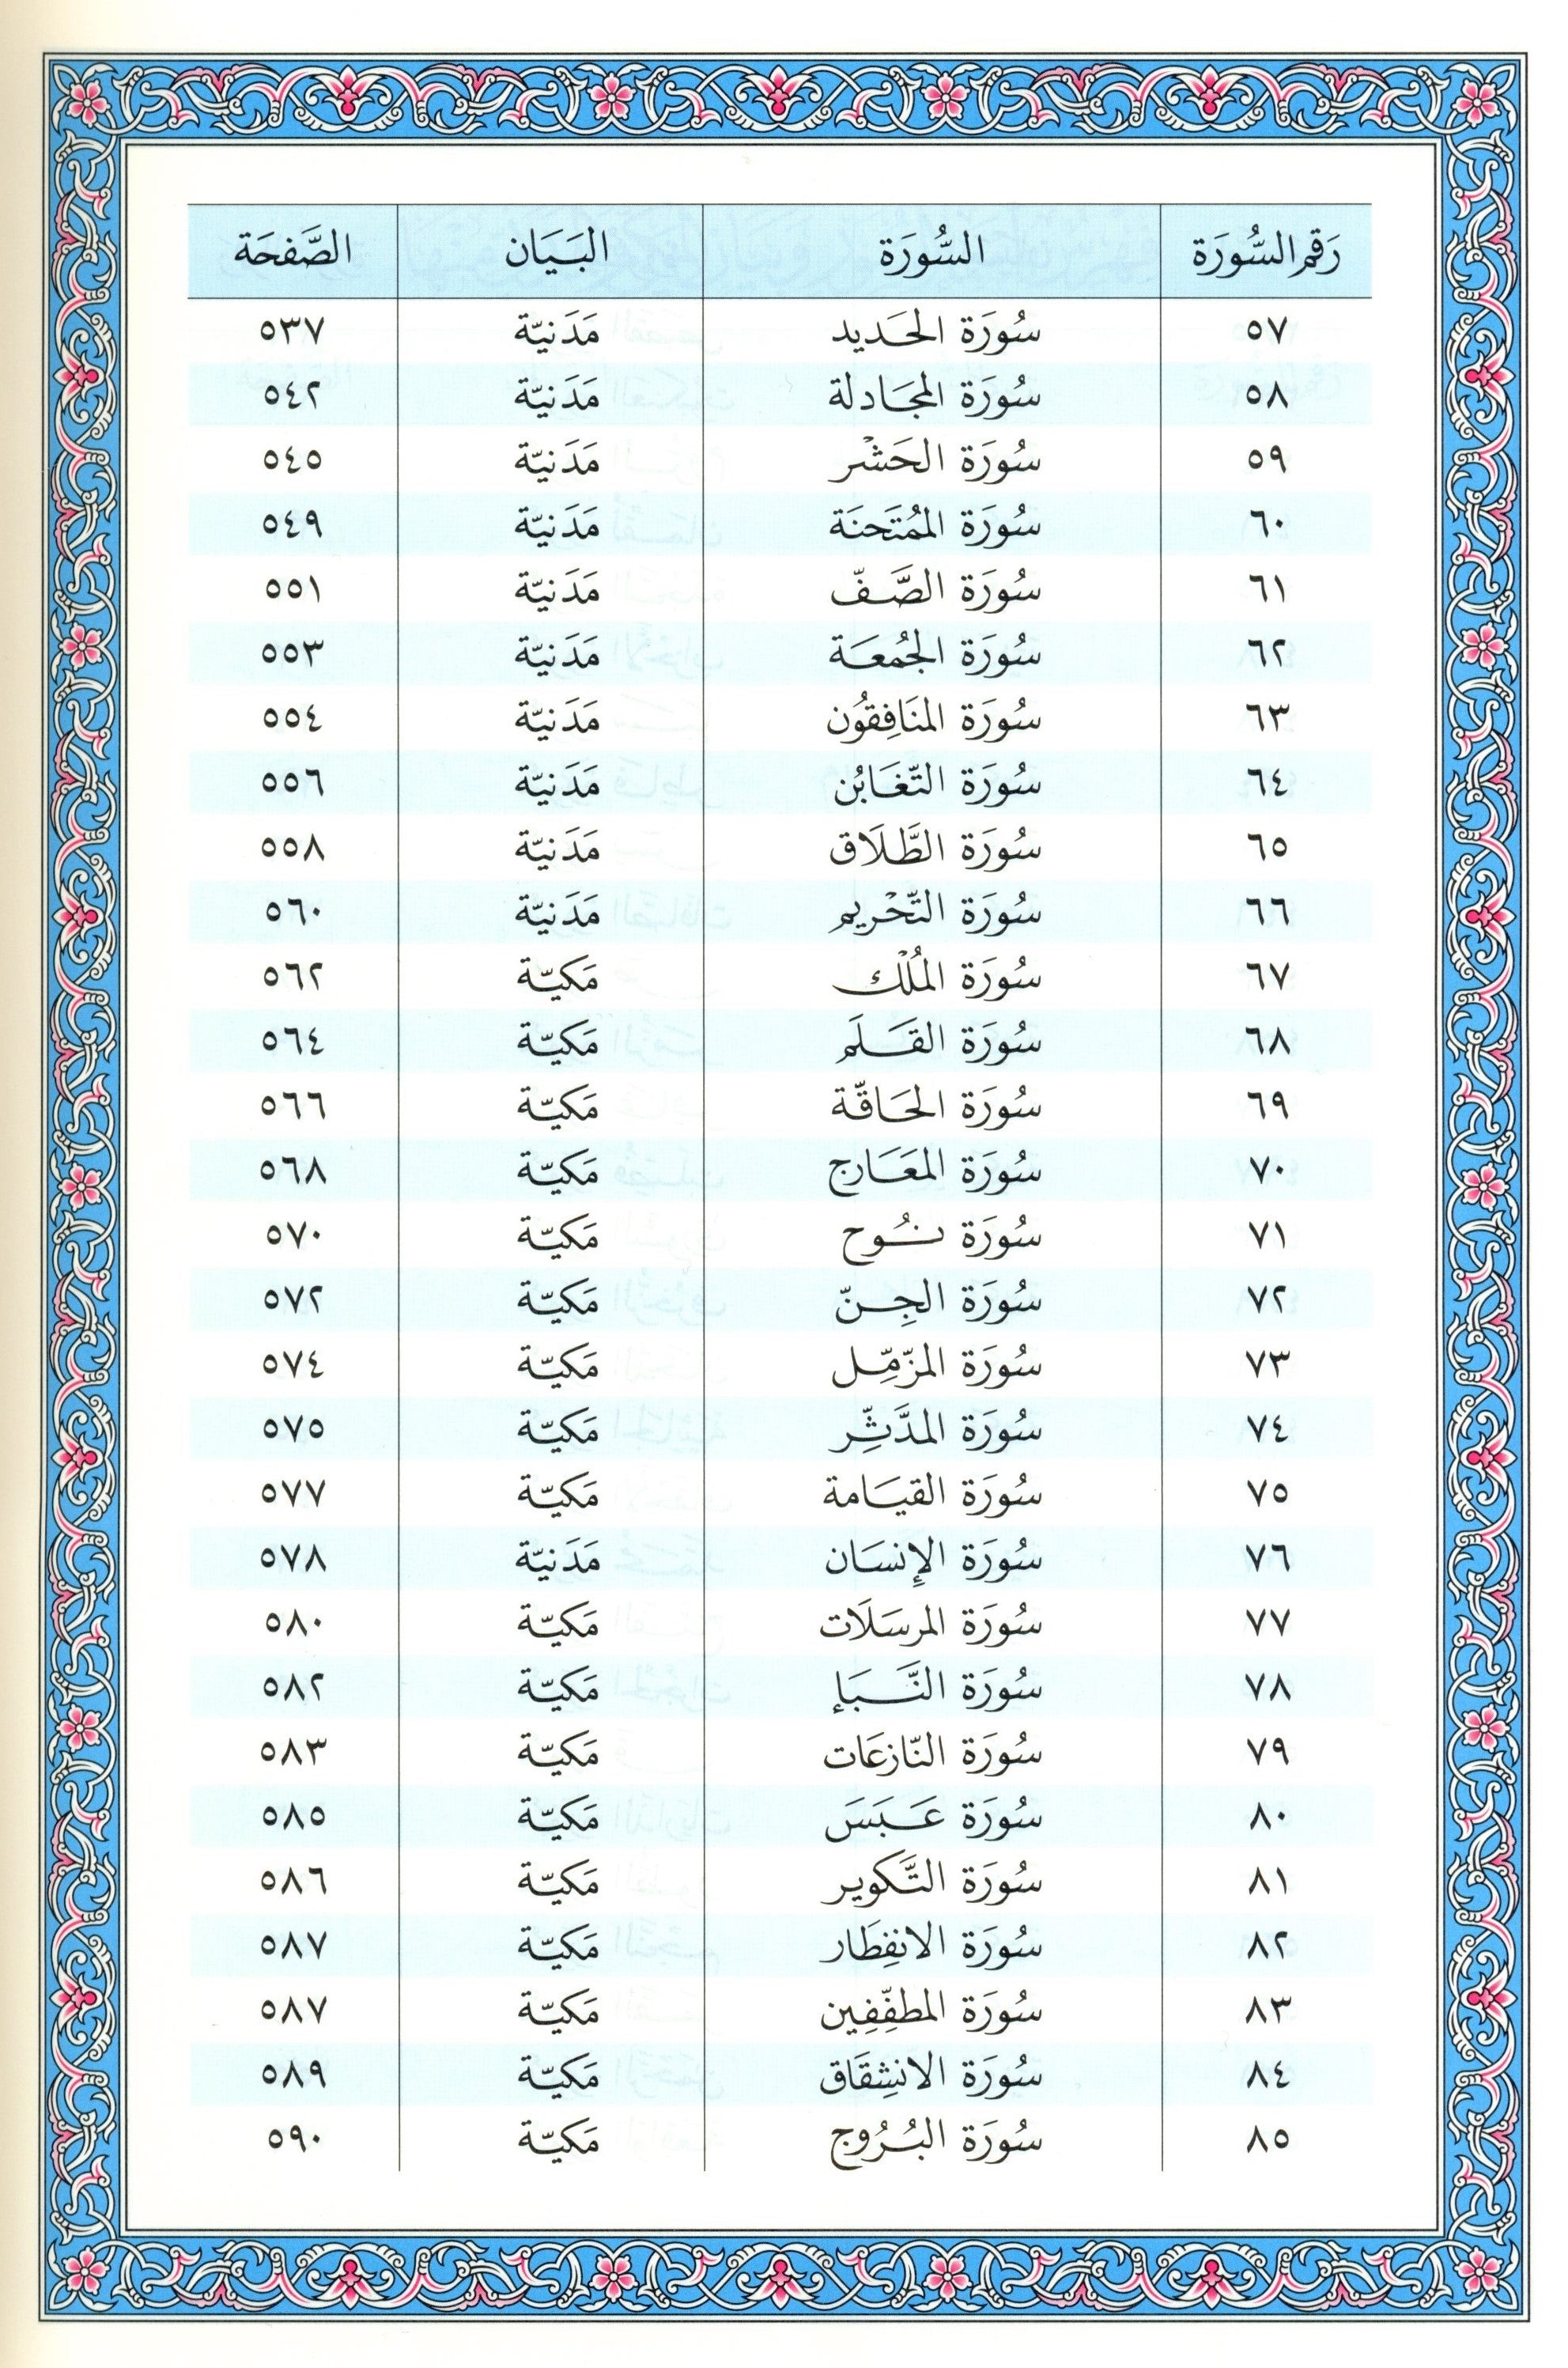 رَقم السُّورَة السُّورَة البَيَان الصَّفحَة
٥٧ سُورَة الحَديد مَدَنيّة ٥٣٧
٥٨ سُورَة المجَادلة مَدَنيّة ٥٤٢
٥٩ سُورَة الحَشْر مَدَنيّة ٥٤٥
٦٠ سُورَة المُمْتَحنَة مَدَنيّة ٥٤٩
٦١ سُورَة الصَّفّ مَدَنيّة ٥٥١
٦٢ سُورَة الجُمعَة مَدَنيّة ٥٥٣
٦٣ سُورَة المنَافِقُون مَدَنيّة ٥٥٤
٦٤ سُورَة التّغَابُن مَدَنيّة ٥٥٦
٦٥ سُورَة الطَّلَاق مَدَنيّة ٥٥٨
٦٦ سُورَة التّحْريم مَدَنيّة ٥٦٠
٦٧ سُورَة المُلْك مَكيّة ٥٦٢
٦٨ سُورَة القَلَم مَكيّة ٥٦٤
٦٩ سُورَة الحَاقّة مَكيّة ٥٦٦
٧٠ سُورَة المعَارج مَكيّة ٥٦٨
٧١ سُورَة نُوح مَكيّة ٥٧٠
٧٢ سُورَة الجِنّ مَكيّة ٥٧٢
٧٣ سُورَة المزّمّل مَكيّة ٥٧٤
٧٤ سُورَة المدَّثِّر مَكيّة ٥٧٥
٧٥ سُورَة القيَامة مَكيّة ٥٧٧
٧٦ سُورَة الإِنسَان مَدَنيّة ٥٧٨
٧٧ سُورَة المرسَلَات مَكيّة ٥٨٠
٧٨ سُورَة النَّبَإ مَكيّة ٥٨٢
٧٩ سُورَة النّازعَات مَكيّة ٥٨٣
٨٠ سُورَة عَبَسَ مَكيّة ٥٨٥
٨١ سُورَة التَّكوير مَكيّة ٥٨٦
٨٢ سُورَة الانفِطَار مَكيّة ٥٨٧
٨٣ سُورَة المطفّفِين مَكيّة ٥٨٧
٨٤ سُورَة الانشِقَاق مَكيّة ٥٨٩
٨٥ سُورَة البُرُوج مَكيّة ٥٩٠